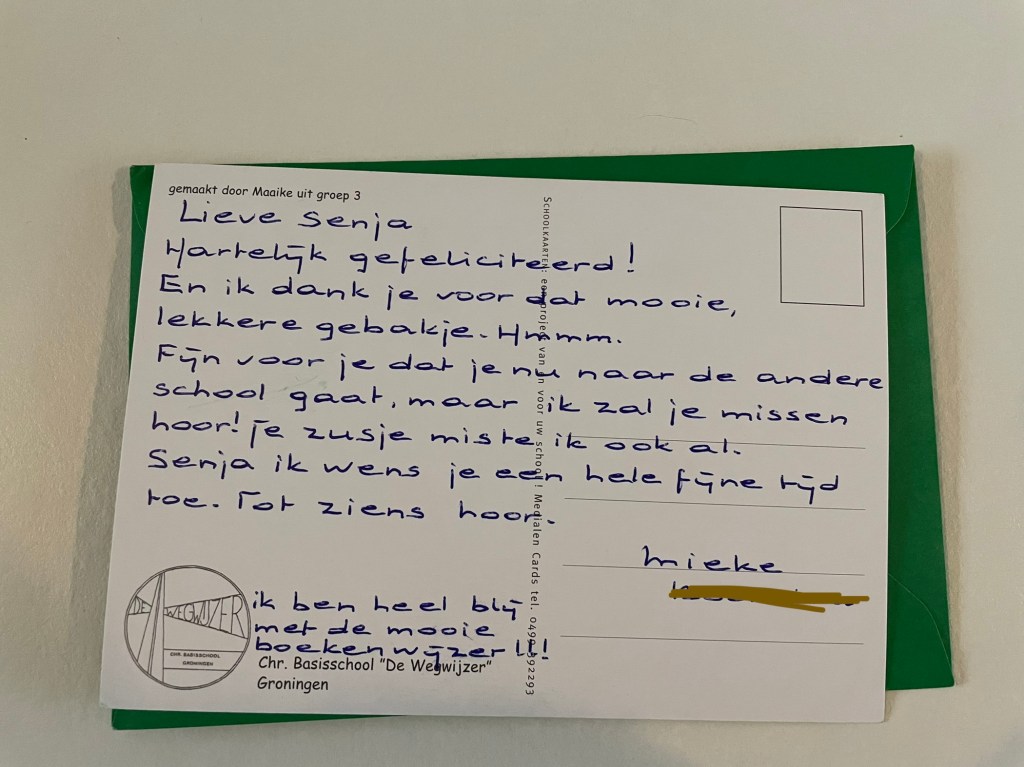 gemaakt door Maaike uit groep 3
Lieve Senja
Hartelijk gefeliciteerd!
En ik dank je voor dat mooie,
lekkere gebakje. Hmmm.
Fijn voor je dat je nu naar de andere
school gaat, maar ik zal je missen
hoor! Je zusje miste ik ook al.
Senja ik wens je een hele fijne tijd
toe. Tot ziens hoor.
Mieke
ik ben heel blij
met de mooie
boekenwijzer!!!
DE WEGWIJZER
CHR. BASISSCHOOL
GRONINGEN
Chr. Basisschool "De Wegwijzer"
Groningen
SCHOOLKAARTEN: een project van en voor uw school! Medialen Cards tel.